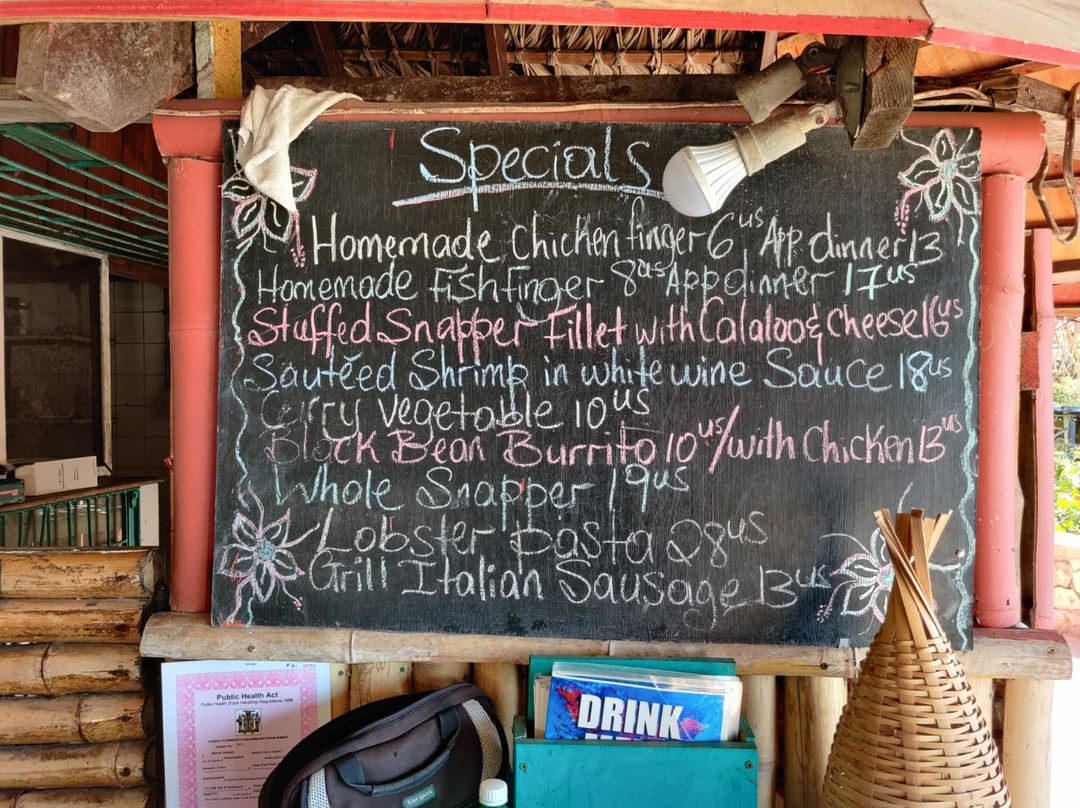 Specials
Homemade Chicken finger 6us App dinner 13
Homemade Fish finger 8us App dinner 17us
Stuffed Snapper Fillet with Calaloo & Cheese 16us
Sautéed Shrimp in white wine Sauce 18us
Curry Vegetable 10us
Black Bean Burrito 10us/with Chicken 13us
Whole Snapper 19us
Lobster pasta 28us
Grill Italian Sausage 13us
Public Health Act
Public Health (Food Handling) Regulations 1998
DRINK
Targus